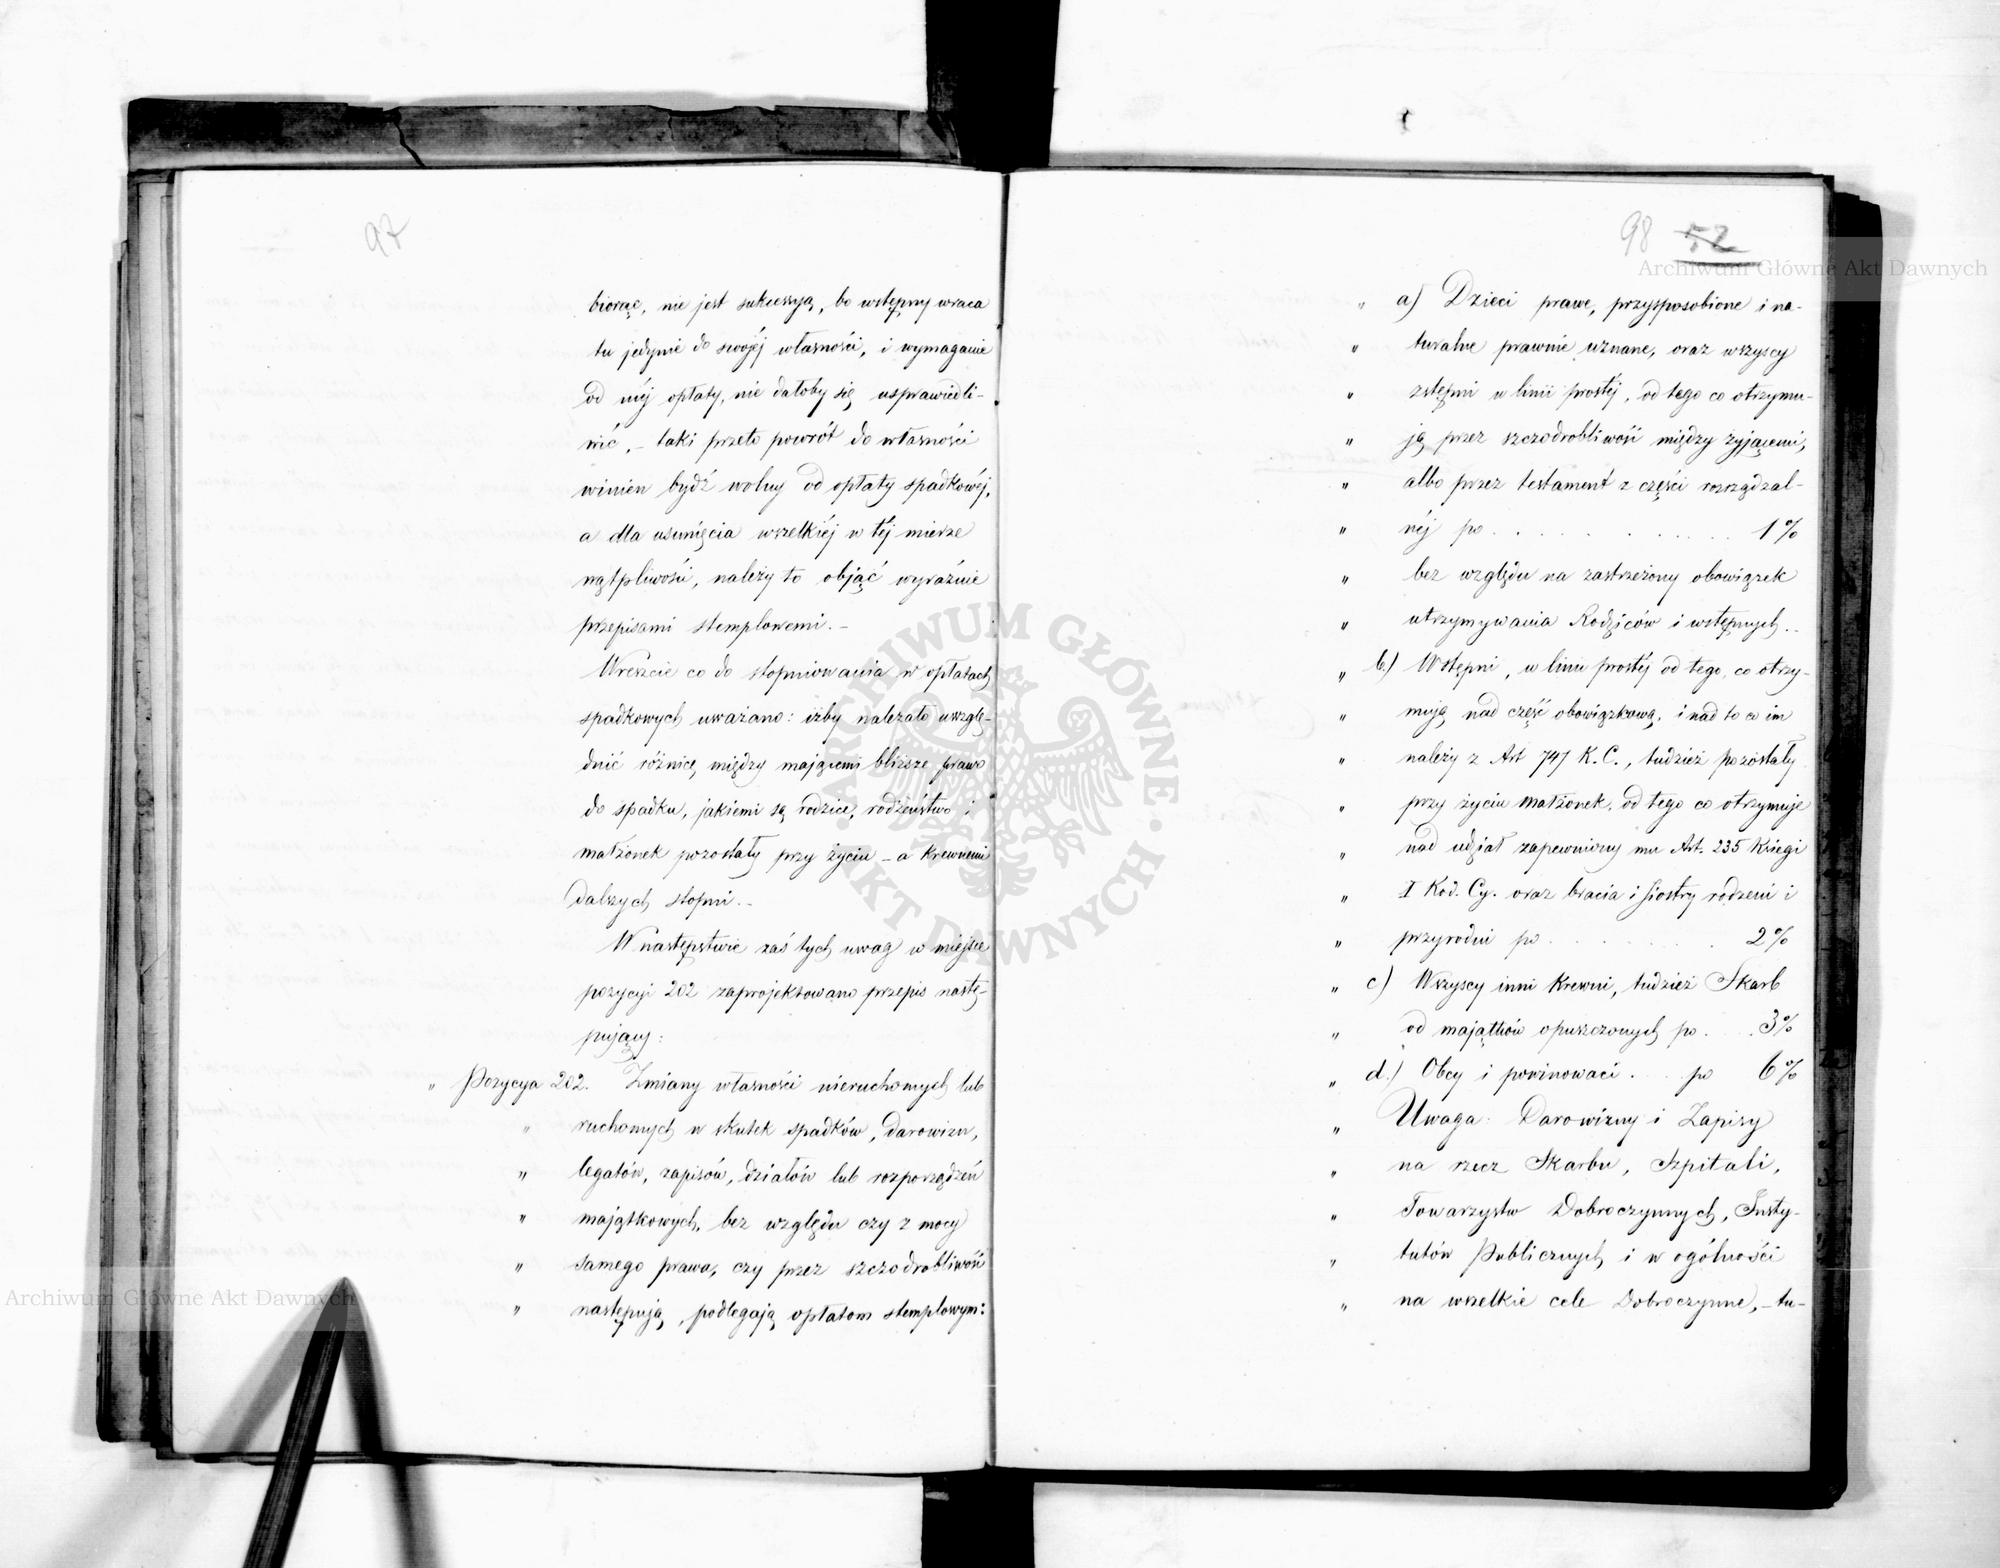 97
biorąc, nie jest sukcessyą, bo wstępny wraca
tu jedynie do swojéj własności, i wymaganie
od niéj opłaty, nie dałoby się usprawiedli-
wić, – taki przeto powrót do własności
winien bydź wolny od opłaty spadkowéj,
a dla usunięcia wszelkiéj w téj mierze
wątpliwości, należy to objąć wyraźnie
przepisami stemplowemi. –
Wreszcie co do stopniowania w opłatach
spadkowych uważano: iżby należało uwzglę-
dnić różnicę, między mającemi bliższe prawo
do spadku, jakiemi są rodzice, rodzeństwo i
małżonek pozostały przy życiu – a krewnemi
dalszych stopni. –
W następstwie zaś tych uwag w miejsce
pozycyi 202 zaprojektowano przepis nastę-
pujący:
„ Pozycya 202. Zmiany własności nieruchomych lub
„ ruchomych w skutek spadków, darowizn,
„ legatów, zapisów, działów lub rozporządzeń
„ majątkowych, bez względu czy z mocy
„ samego prawa, czy przez szczodrobliwość
„ następują, podlegają opłatom stemplowym:
98 52
„ a) Dzieci prawe, przysposobione i na-
„ turalne prawnie uznane, oraz wszyscy
„ zstępni w linii prostéj, od tego co otrzymu-
„ ją przez szczodrobliwość między żyjącemi,
„ albo przez testament z części rozrządzal-
„ néj po . . . . . . . . . . 1%
„ bez względu na zastrzeżony obowiązek
„ utrzymywania Rodziców i wstępnych. –
„ b.) Wstępni, w linii prostéj od tego, co otrzy-
„ mują nad część obowiązkową, i nad to co im
„ należy z Art 747 K. C., tudzież pozostały
„ przy życiu małżonek, od tego co otrzymuje
„ nad udział zapewniony mu Art. 235 Księgi
„ I Kod. Cy. oraz bracia i siostry rodzeni i
„ przyrodni po . . . . . . . 2%
„ c) Wszyscy inni Krewni, tudzież Skarb
„ od majątków opuszczonych po . . 3%
„ d.) Obcy i powinowaci . . . po 6%
„ Uwaga: Darowizny i Zapisy
„ na rzecz Skarbu, Szpitali,
„ Towarzystw Dobroczynnych, Insty-
„ tutów Publicznych i w ogólności
„ na wszelkie cele Dobroczynne, – tu-
Archiwum Główne Akt Dawnych
ARCHIWUM GŁÓWNE · AKT DAWNYCH ·
Archiwum Główne Akt Dawnych